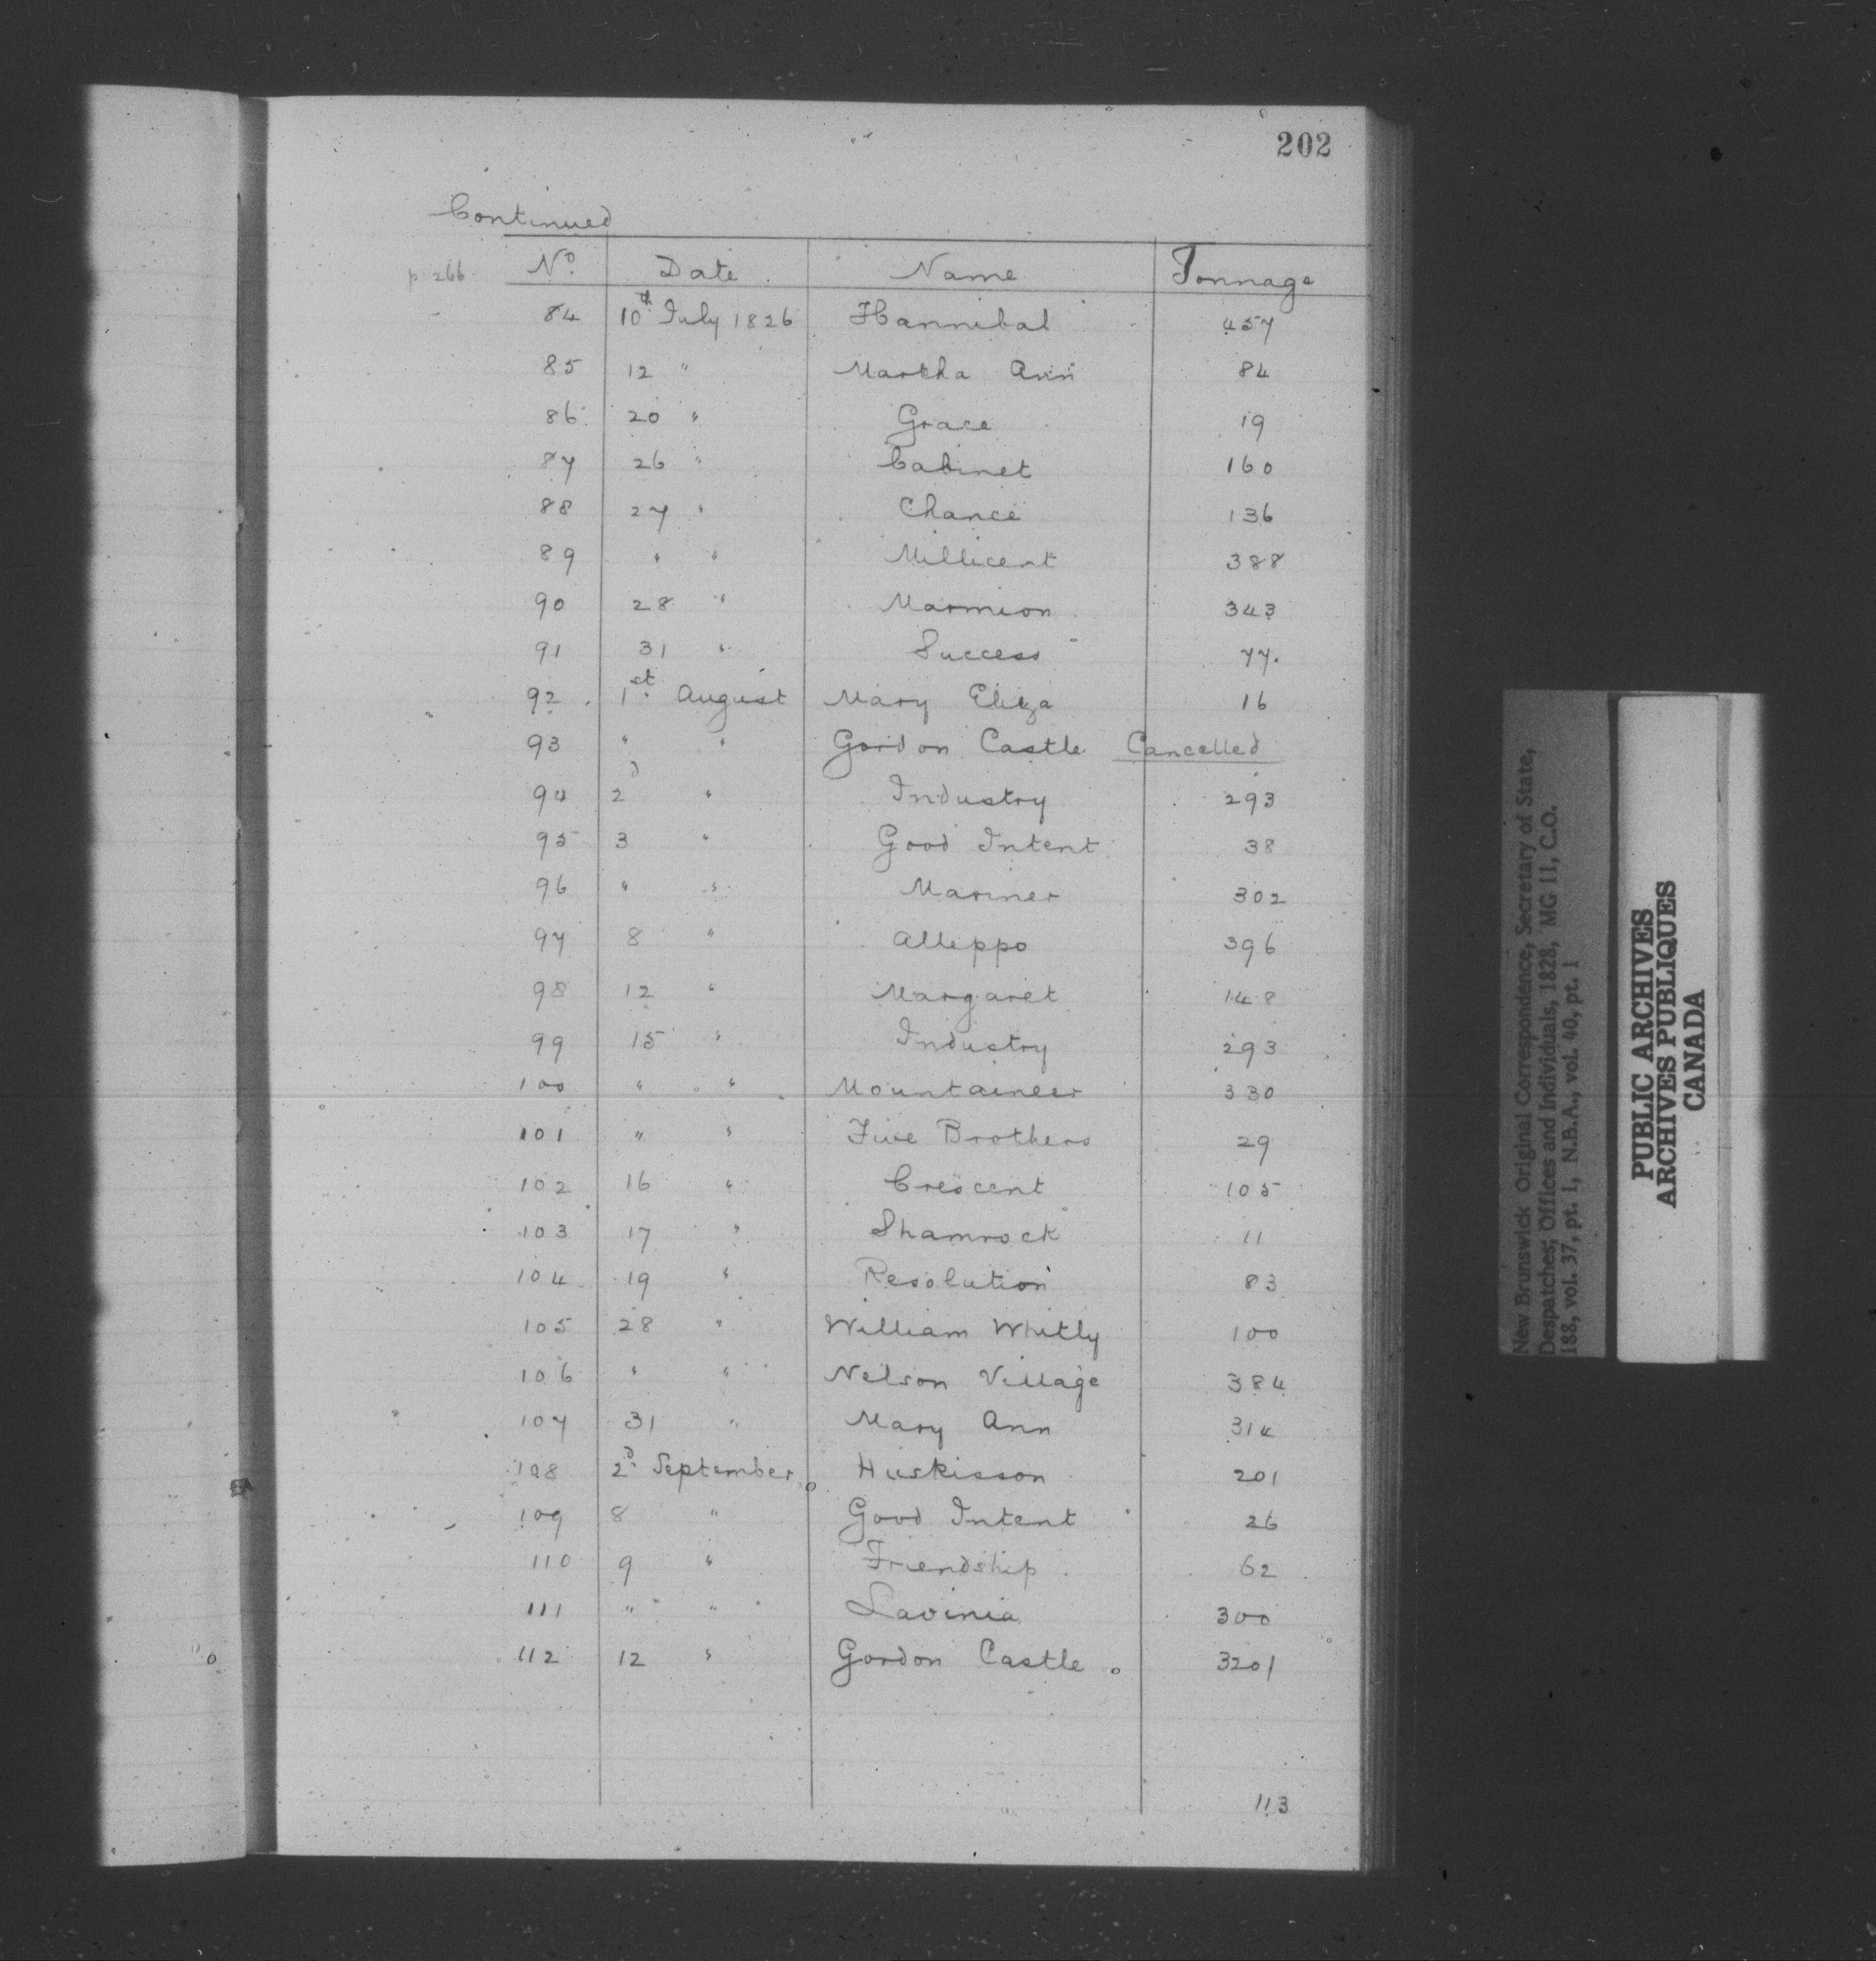 202
Continued
p 266 Nº Date Name Tonnage
84 10th July 1826 Hannibal 457
85 12 " Martha Ann 84
86 20 " Grace 19
87 26 " Cabinet 160
88 27 " Chance 136
89 " " Millicent 388
90 28 " Marmion 343
91 31 " Success 77.
92 1st August Mary Eliza 16
93 " " Gordon Castle Cancelled
94 2d " Industry 293
95 3 " Good Intent 38
96 " " Mariner 302
97 8 " Alleppo 396
98 12 " Margaret 148
99 15 " Industry 293
100 " " Mountaineer 330
101 " " Five Brothers 29
102 16 " Crescent 105
103 17 " Shamrock 11
104 19 " Resolution 83
105 28 " William Whitly 100
106 " " Nelson Village 384
107 31 " Mary Ann 314
108 2d September Huskisson 201
109 8 " Good Intent 26
110 9 " Friendship 62
111 " " Lavinia 300
112 12 " Gordon Castle 3201
113
New Brunswick Original Correspondence, Secretary of State,
Despatches; Offices and Individuals, 1828, MG 11, C.O.
188, vol. 37, pt. 1, N.B.A., vol. 40, pt. 1
PUBLIC ARCHIVES
ARCHIVES PUBLIQUES
CANADA